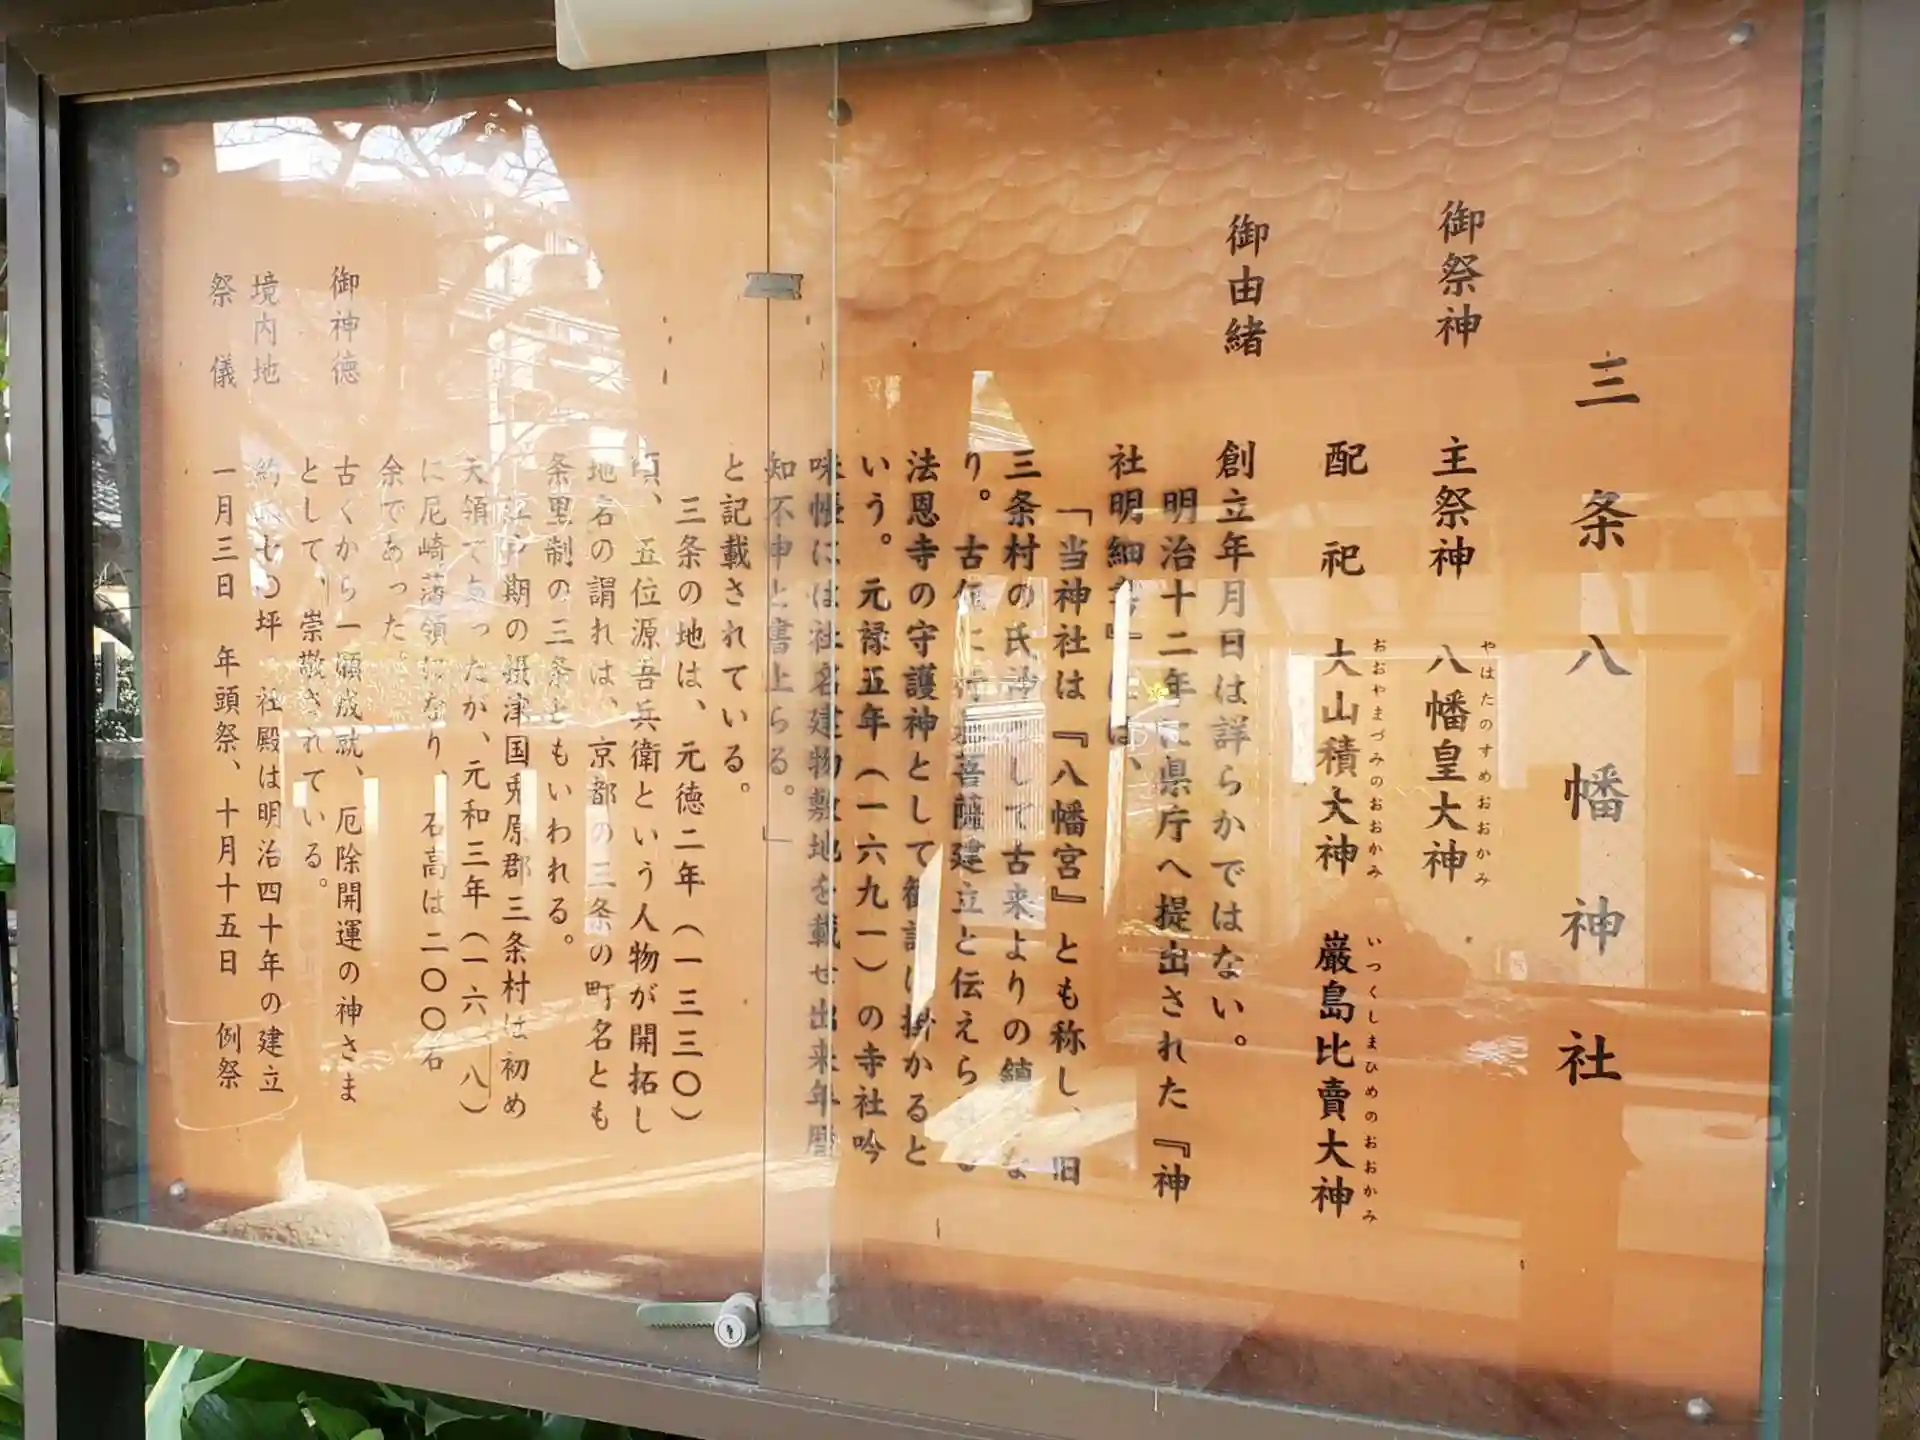 三条八幡神社
御祭神 主祭神 八幡皇大神
やはたのすめおおかみ
配祀 大山積大神 巌島比賣大神
おおやまづみのおおかみ いつくしまひめのおおかみ
御由緒 創立年月日は詳らかではない。
明治十二年に県庁へ提出された『神
社明細書』には、
「当神社は『八幡宮』とも称し、旧
三条村の氏神として古来よりの鎮守な
り。古伝に行基菩薩建立と伝えら
法恩寺の守護神として勧請に掛かると
いう。元禄五年(一六九一)の寺社吟
味帳には社名建物敷地を載せ出来年暦
知不申と書上らる。」
と記載されている。
三条の地は、元徳二年(一三三〇)
頃、五位源吾兵衛という人物が開拓し
地名の謂れは、京都の三条の町名とも
条里制の三条ともいわれる。
江戸期の摂津国兎原郡三条村は初め
天領であったが、元和三年(一六一八)
に尼崎藩領になり、石高は二〇〇石
余であった
御神徳 古くから一願成就、厄除開運の神さま
として、崇敬されている。
境内地 七〇坪 社殿は明治四十年の建立
祭儀 一月三日 年頭祭、十月十五日 例祭